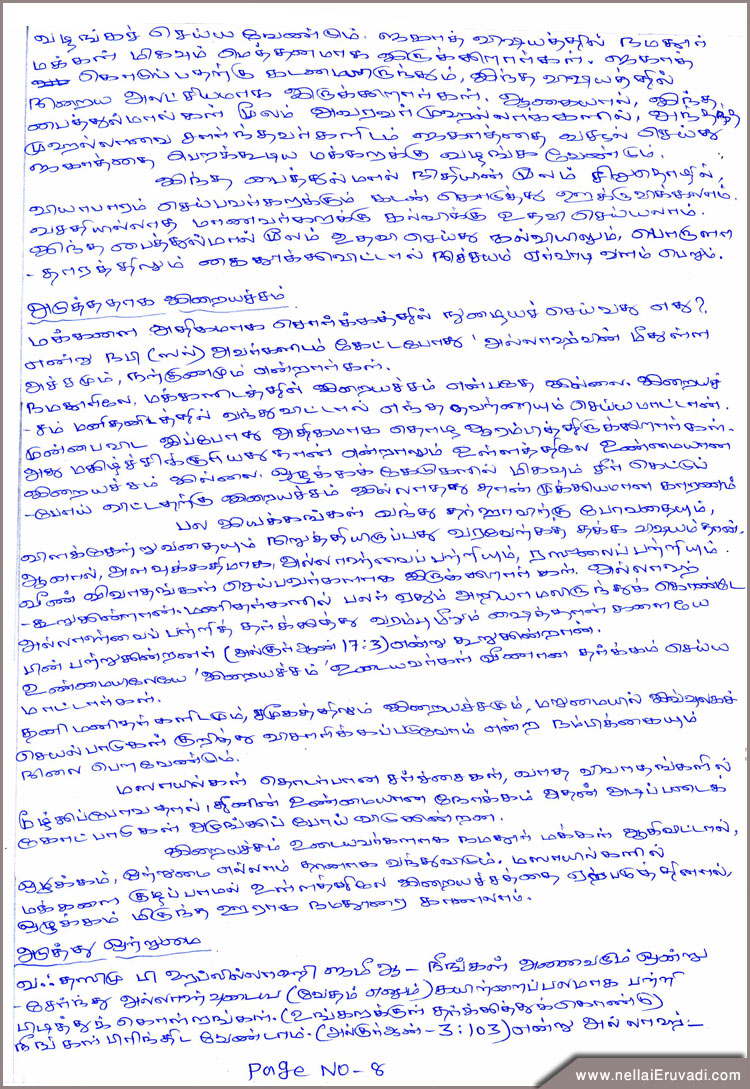 வழங்கச் செய்ய வேண்டும். ஜகாத் விஷயத்தில் நமதூர்
மக்கள் மிகவும் மெத்தனமாக இருக்கிறார்கள். ஜகாத்
கொடுப்பதற்கு கடமையிருந்தும், இந்த விஷயத்தில்
நிறைய அலட்சியமாக இருக்கிறார்கள். ஆகையால், இந்த
பைத்துல்மால்கள் மூலம் அவரவர் முஹல்லாக்களில், அந்தந்த
முஹல்லாவை சார்ந்தவர்களிடம் ஜகாத்தை வசூல் செய்து
ஜகாத்தை பெறக்கூடிய மக்களுக்கு வழங்க வேண்டும்.
இந்த பைத்துல்மால் நிதியின் மூலம் சிறுதொழில்,
வியாபாரம் செய்பவர்களுக்கும் கடன் கொடுத்து ஊக்குவிக்கலாம்.
வசதியில்லாத மாணவர்களுக்கு கல்விக்கு உதவி செய்யலாம்.
இந்த பைத்துல்மால் மூலம் உதவி செய்து கல்வியிலும், பொருளா
- தாரத்திலும் கைதூக்கிவிட்டால் நிச்சயம் ஏர்வாடி வளம் பெறும்.
அடுத்ததாக இறையச்சம்
மக்களை அதிகமாக சொர்க்கத்தில் நுழையச் செய்வது எது?
என்று நபி (ஸல்) அவர்களிடம் கேட்டபோது 'அல்லாஹ்வின் மீதுள்ள
அச்சமும், நற்குணமும் என்றார்கள்.
நமதூரிலே, மக்களிடத்தில் இறையச்சம் என்பதே இல்லை. இறையச்
- சம் மனிதனிடத்தில் வந்துவிட்டால் எந்த தவறையும் செய்யமாட்டான்.
முன்பைவிட இப்போது அதிகமாக தொழ ஆரம்பித்திருக்கிறார்கள்.
அது மகிழ்ச்சிக்குரியதுதான் என்றாலும் உள்ளத்திலே உண்மையான
இறையச்சம் இல்லை. ஒழுக்கக் கேடுகளில் மிகவும் சீர் கெட்டுப்
- போய் விட்டதற்கு இறையச்சம் இல்லாதது தான் முக்கியமான காரணம்
பல இயக்கங்கள் வந்து தர்ஹாவிற்கு போவதையும்,
விளக்கேற்றுவதையும் நிறுத்தியிருப்பது வரவேற்கத் தக்க விஷயம்தான்.
ஆனால், அளவுக்கதிமாக, அல்லாஹ்வைப் பற்றியும், ரஸூலைப் பற்றியும்
வீண் விவாதங்கள் செய்பவர்களாக இருக்கிறார்கள். அல்லாஹ்
- கூறுகின்றான். மனிதர்களில் பலர் ஏதும் அறியாமலிருந்துக் கொண்டே
அல்லாஹ்வைப் பற்றித் தர்க்கித்து வரம்பு மீறும் ஷைத்தான்களையே
பின் பற்றுகின்றனர் (அல்குர்ஆன் 17:3) என்று கூறுகின்றான்.
உண்மையிலேயே 'இறையச்சம்' உடையவர்கள் வீணான தர்க்கம் செய்ய
மாட்டார்கள்.
தனி மனிதர்களிடமும், சமூகத்திலும் இறையச்சமும், மறுமையில் இவ்வுலகச்
செயல்பாடுகள் குறித்து விசாரிக்கப்படுவோம் என்ற நம்பிக்கையும்
நிலை பெறவேண்டும்.
மஸாயில்கள் தொடர்பான சர்ச்சைகள், வாத விவாதங்களில்
மூழ்கிப்போவதால், தீனின் உண்மையான நோக்கம் அதன் அடிப்படைக்
கோட்பாடுகள் அமுங்கிப் போய் விடுகின்றன.
இறையச்சம் உடையவர்களாக நமதூர் மக்கள் ஆகிவிட்டால்,
ஒழுக்கம், ஒற்றுமை எல்லாம் தானாக வந்துவிடும். மஸாயில்களில்
மக்களை குழப்பாமல் உள்ளத்திலே இறையச்சத்தை ஏற்படுத்தினால்,
ஒழுக்கம் மிகுந்த ஊராக நமதூரை காணலாம்.
அடுத்து ஒற்றுமை
வஃதஸிமூ பி ஹப்லில்லாஹி ஜமீஆ - நீங்கள் அனைவரும் ஒன்று
- சேர்ந்து அல்லாஹ்வுடைய (வேதம் எனும்) கயிற்றைப் பலமாக பற்றி
பிடித்துக் கொள்ளுங்கள். (உங்களுக்குள் தர்க்கித்துக்கொண்டு)
நீங்கள் பிரிந்திட வேண்டாம். (அல்குர்ஆன் - 3:103) என்று அல்லாஹ் -
Page No - 8
www.nellaiEruvadi.com